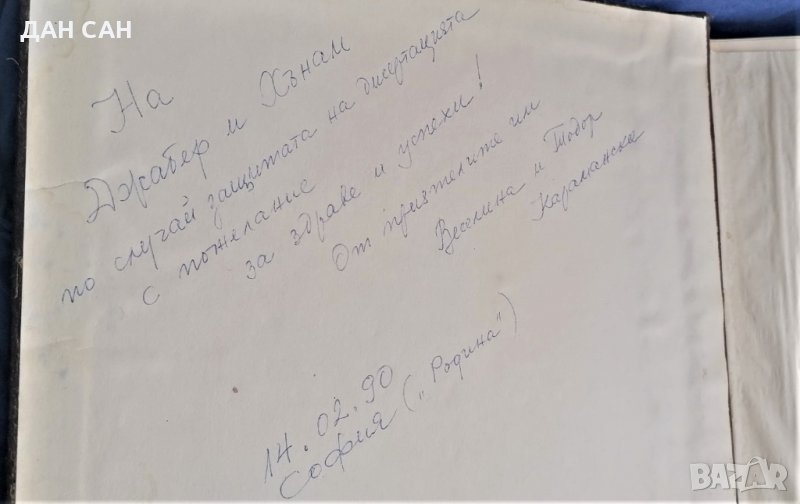 ДАН САН
На
Джабер и Хънам
по случай защитата на дисертацията
с пожелание
за здраве и успехи!
От приятелите им
Веселина и Тодор
Карамански
14.02.90
София („Родина")
BAZAR